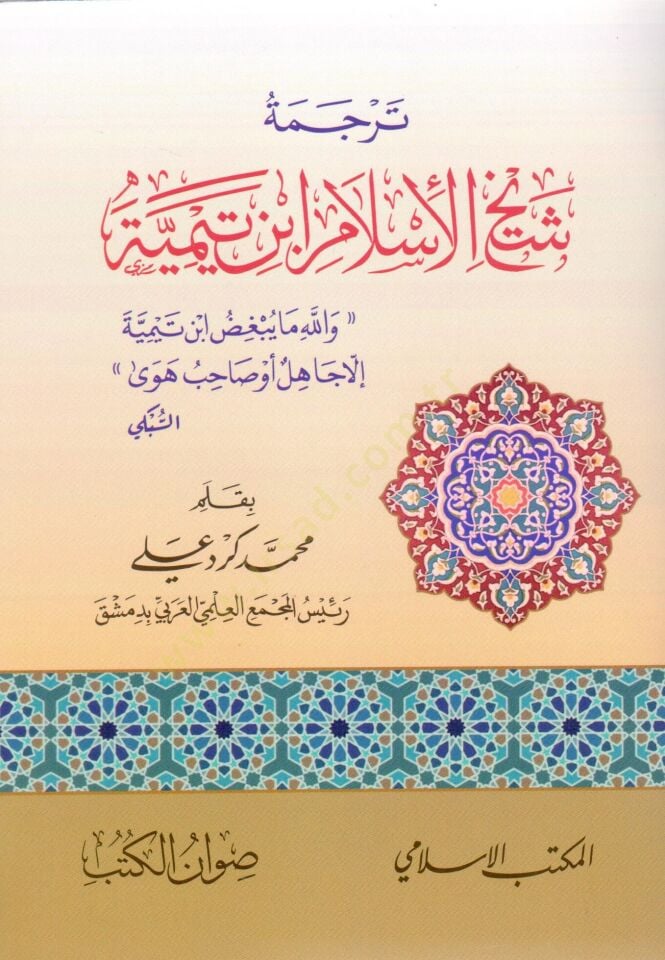 تَرْجَمَةُ
شَيْخِ الإِسْلَامِ ابْنِ تَيْمِيَّةَ
« وَاللَّهِ مَا يُبْغِضُ ابْنَ تَيْمِيَّةَ
إِلَّا جَاهِلٌ أَوْ صَاحِبُ هَوَىٰ »
السُّبْكي
بِقَلَم
محمَّد كرْد عَلي
رَئِيسُ المَجْمَعِ العِلْمِيِّ العَرَبِيِّ بِدِمَشْقَ
المكتب الإسلامي
صِوَانُ الكُتُبِ